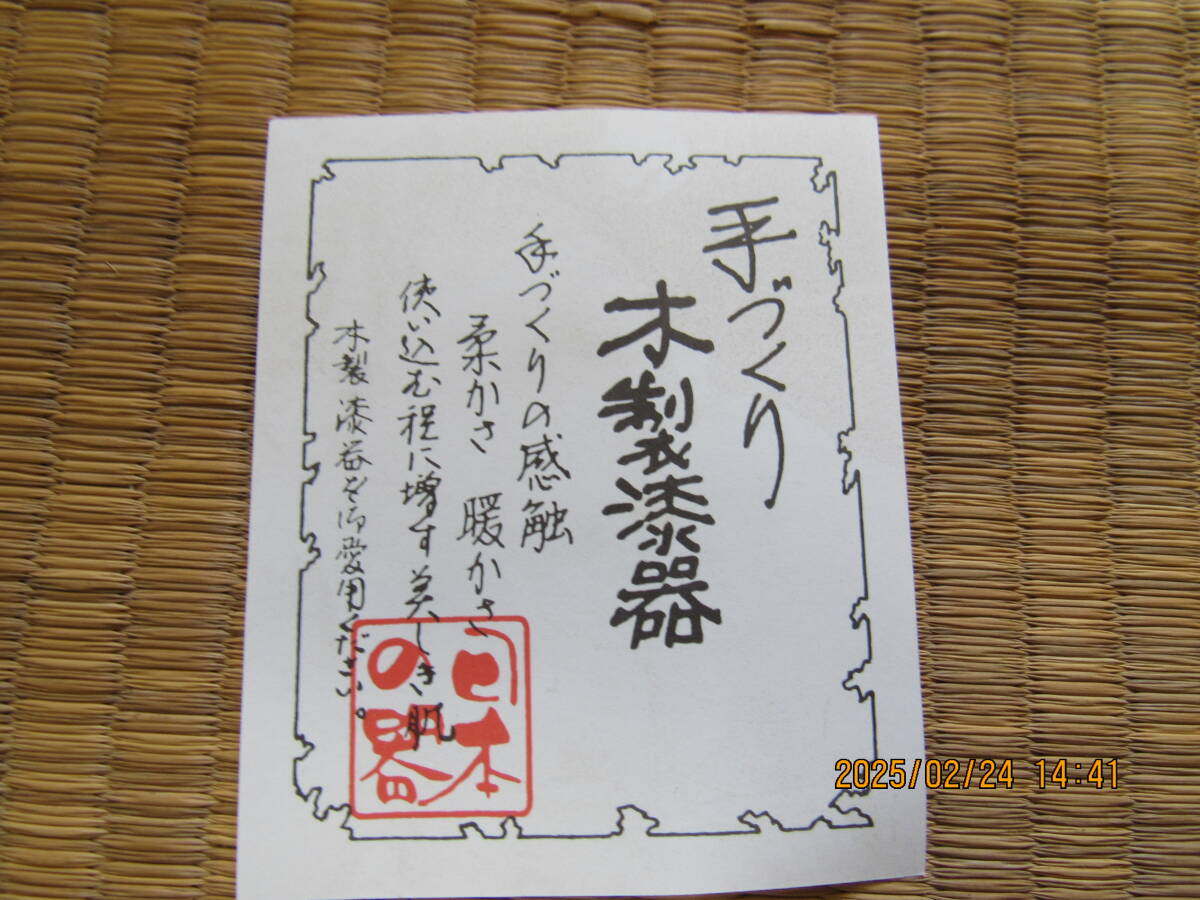 手づくり
木製漆器
手づくりの感触
柔かさ 暖かさ
使い込む程に増す美しき肌
木製漆器を御愛用ください。
日本
の器
2025/02/24 14:41